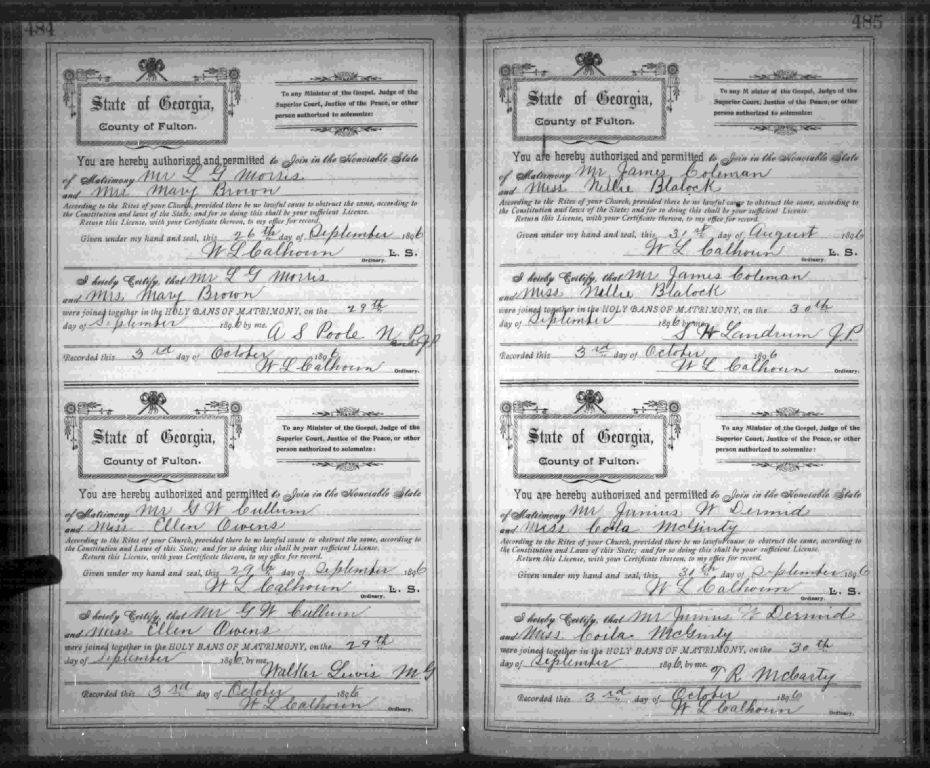 484
State of Georgia,
County of Fulton.
To any Minister of the Gospel, Judge of the
Superior Court, Justice of the Peace, or other
person authorized to solemnize:
You are hereby authorized and permitted to Join in the Honorable State
of Matrimony Mr L G Morris
and Mrs Mary Brown
According to the Rites of your Church, provided there be no lawful cause to obstruct the same, according to
the Constitution and laws of the State; and for so doing this shall be your sufficient License.
Return this License, with your Certificate thereon, to my office for record.
Given under my hand and seal, this 26th day of September 1896
W L Calhoun L. S.
Ordinary.
I hereby Certify, that Mr L G Morris
and Mrs Mary Brown
were joined together in the HOLY BANS OF MATRIMONY, on the 29th
day of September 1896 by me.
A S Poole N P and JP
Recorded this 3rd day of October 1896
W L Calhoun
Ordinary.
State of Georgia,
County of Fulton.
To any Minister of the Gospel, Judge of the
Superior Court, Justice of the Peace, or other
person authorized to solemnize:
You are hereby authorized and permitted to Join in the Honorable State
of Matrimony Mr G W Cullum
and Miss Ellen Owens
According to the Rites of your Church, provided there be no lawful cause to obstruct the same, according to
the Constitution and Laws of this State; and for so doing this shall be your sufficient License.
Return this License, with your Certificate thereon, to my office for record.
Given under my hand and seal, this 29th day of September 1896
W L Calhoun L. S.
Ordinary.
I hereby Certify, that Mr G W Cullum
and Miss Ellen Owens
were joined together in the HOLY BANS OF MATRIMONY, on the 29th
day of September 1896, by me.
Walker Lewis M G
Recorded this 3rd day of October 1896
W L Calhoun
Ordinary.
485
State of Georgia,
County of Fulton.
To any Minister of the Gospel, Judge of the
Superior Court, Justice of the Peace, or other
person authorized to solemnize:
You are hereby authorized and permitted to Join in the Honorable State
of Matrimony Mr James Coleman
and Miss Nellie Blalock
According to the Rites of your Church, provided there be no lawful cause to obstruct the same, according to
the Constitution and laws of the State; and for so doing this shall be your sufficient License.
Return this License, with your Certificate thereon, to my office for record.
Given under my hand and seal, this 30th day of August 1896
W L Calhoun L. S.
Ordinary.
I hereby Certify, that Mr James Coleman
and Miss Nellie Blalock
were joined together in the HOLY BANS OF MATRIMONY, on the 30th
day of September 1896 by me.
S H Landrum J P
Recorded this 3rd day of October 1896
W L Calhoun
Ordinary.
State of Georgia,
County of Fulton.
To any Minister of the Gospel, Judge of the
Superior Court, Justice of the Peace, or other
person authorized to solemnize:
You are hereby authorized and permitted to Join in the Honorable State
of Matrimony Mr Junius W Dermid
and Miss Coila McGinty
According to the Rites of your Church, provided there be no lawful cause to obstruct the same, according to
the Constitution and Laws of this State; and for so doing this shall be your sufficient License.
Return this License, with your Certificate thereon, to my office for record.
Given under my hand and seal, this 30th day of September 1896
W L Calhoun L. S.
Ordinary.
I hereby Certify, that Mr Junius W Dermid
and Miss Coila McGinty
were joined together in the HOLY BANS OF MATRIMONY, on the 30th
day of September 1896, by me.
T R McCarty
Recorded this 3rd day of October 1896
W L Calhoun
Ordinary.